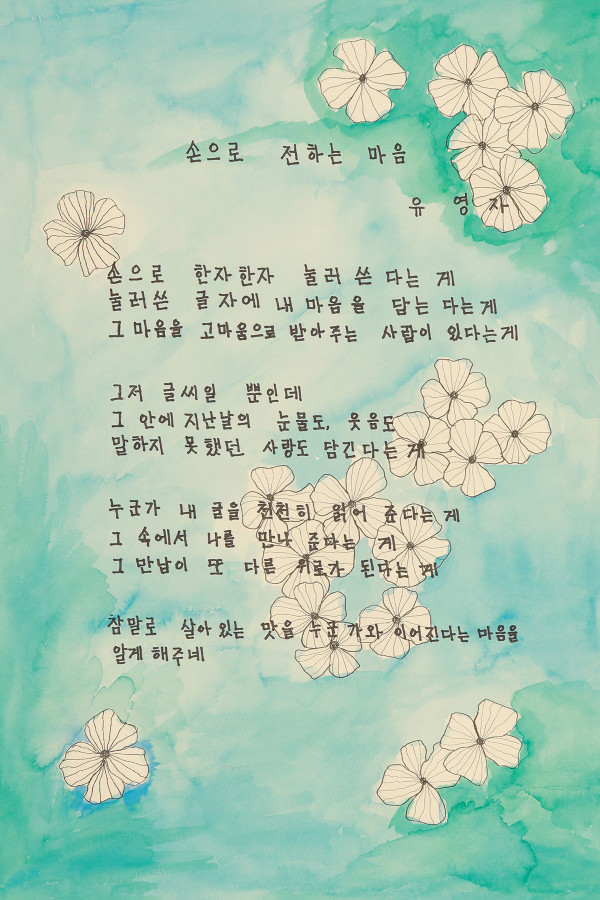 손으로 전하는 마음
유영자
손으로 한자한자 눌러 쓴 다는 게
눌러쓴 글자에 내 마음을 담는 다는게
그 마음을 고마움으로 받아주는 사람이 있다는게
그저 글씨일 뿐인데
그 안에 지난날의 눈물도, 웃음도
말하지 못했던 사랑도 담긴다는 게
누군가 내 글을 천천히 읽어 준다는 게
그 속에서 나를 만나 준다는 게
그 만남이 또 다른 위로가 된다는 게
참말로 살아있는 맛을 누군가와 이어진다는 마음을
알게 해주네